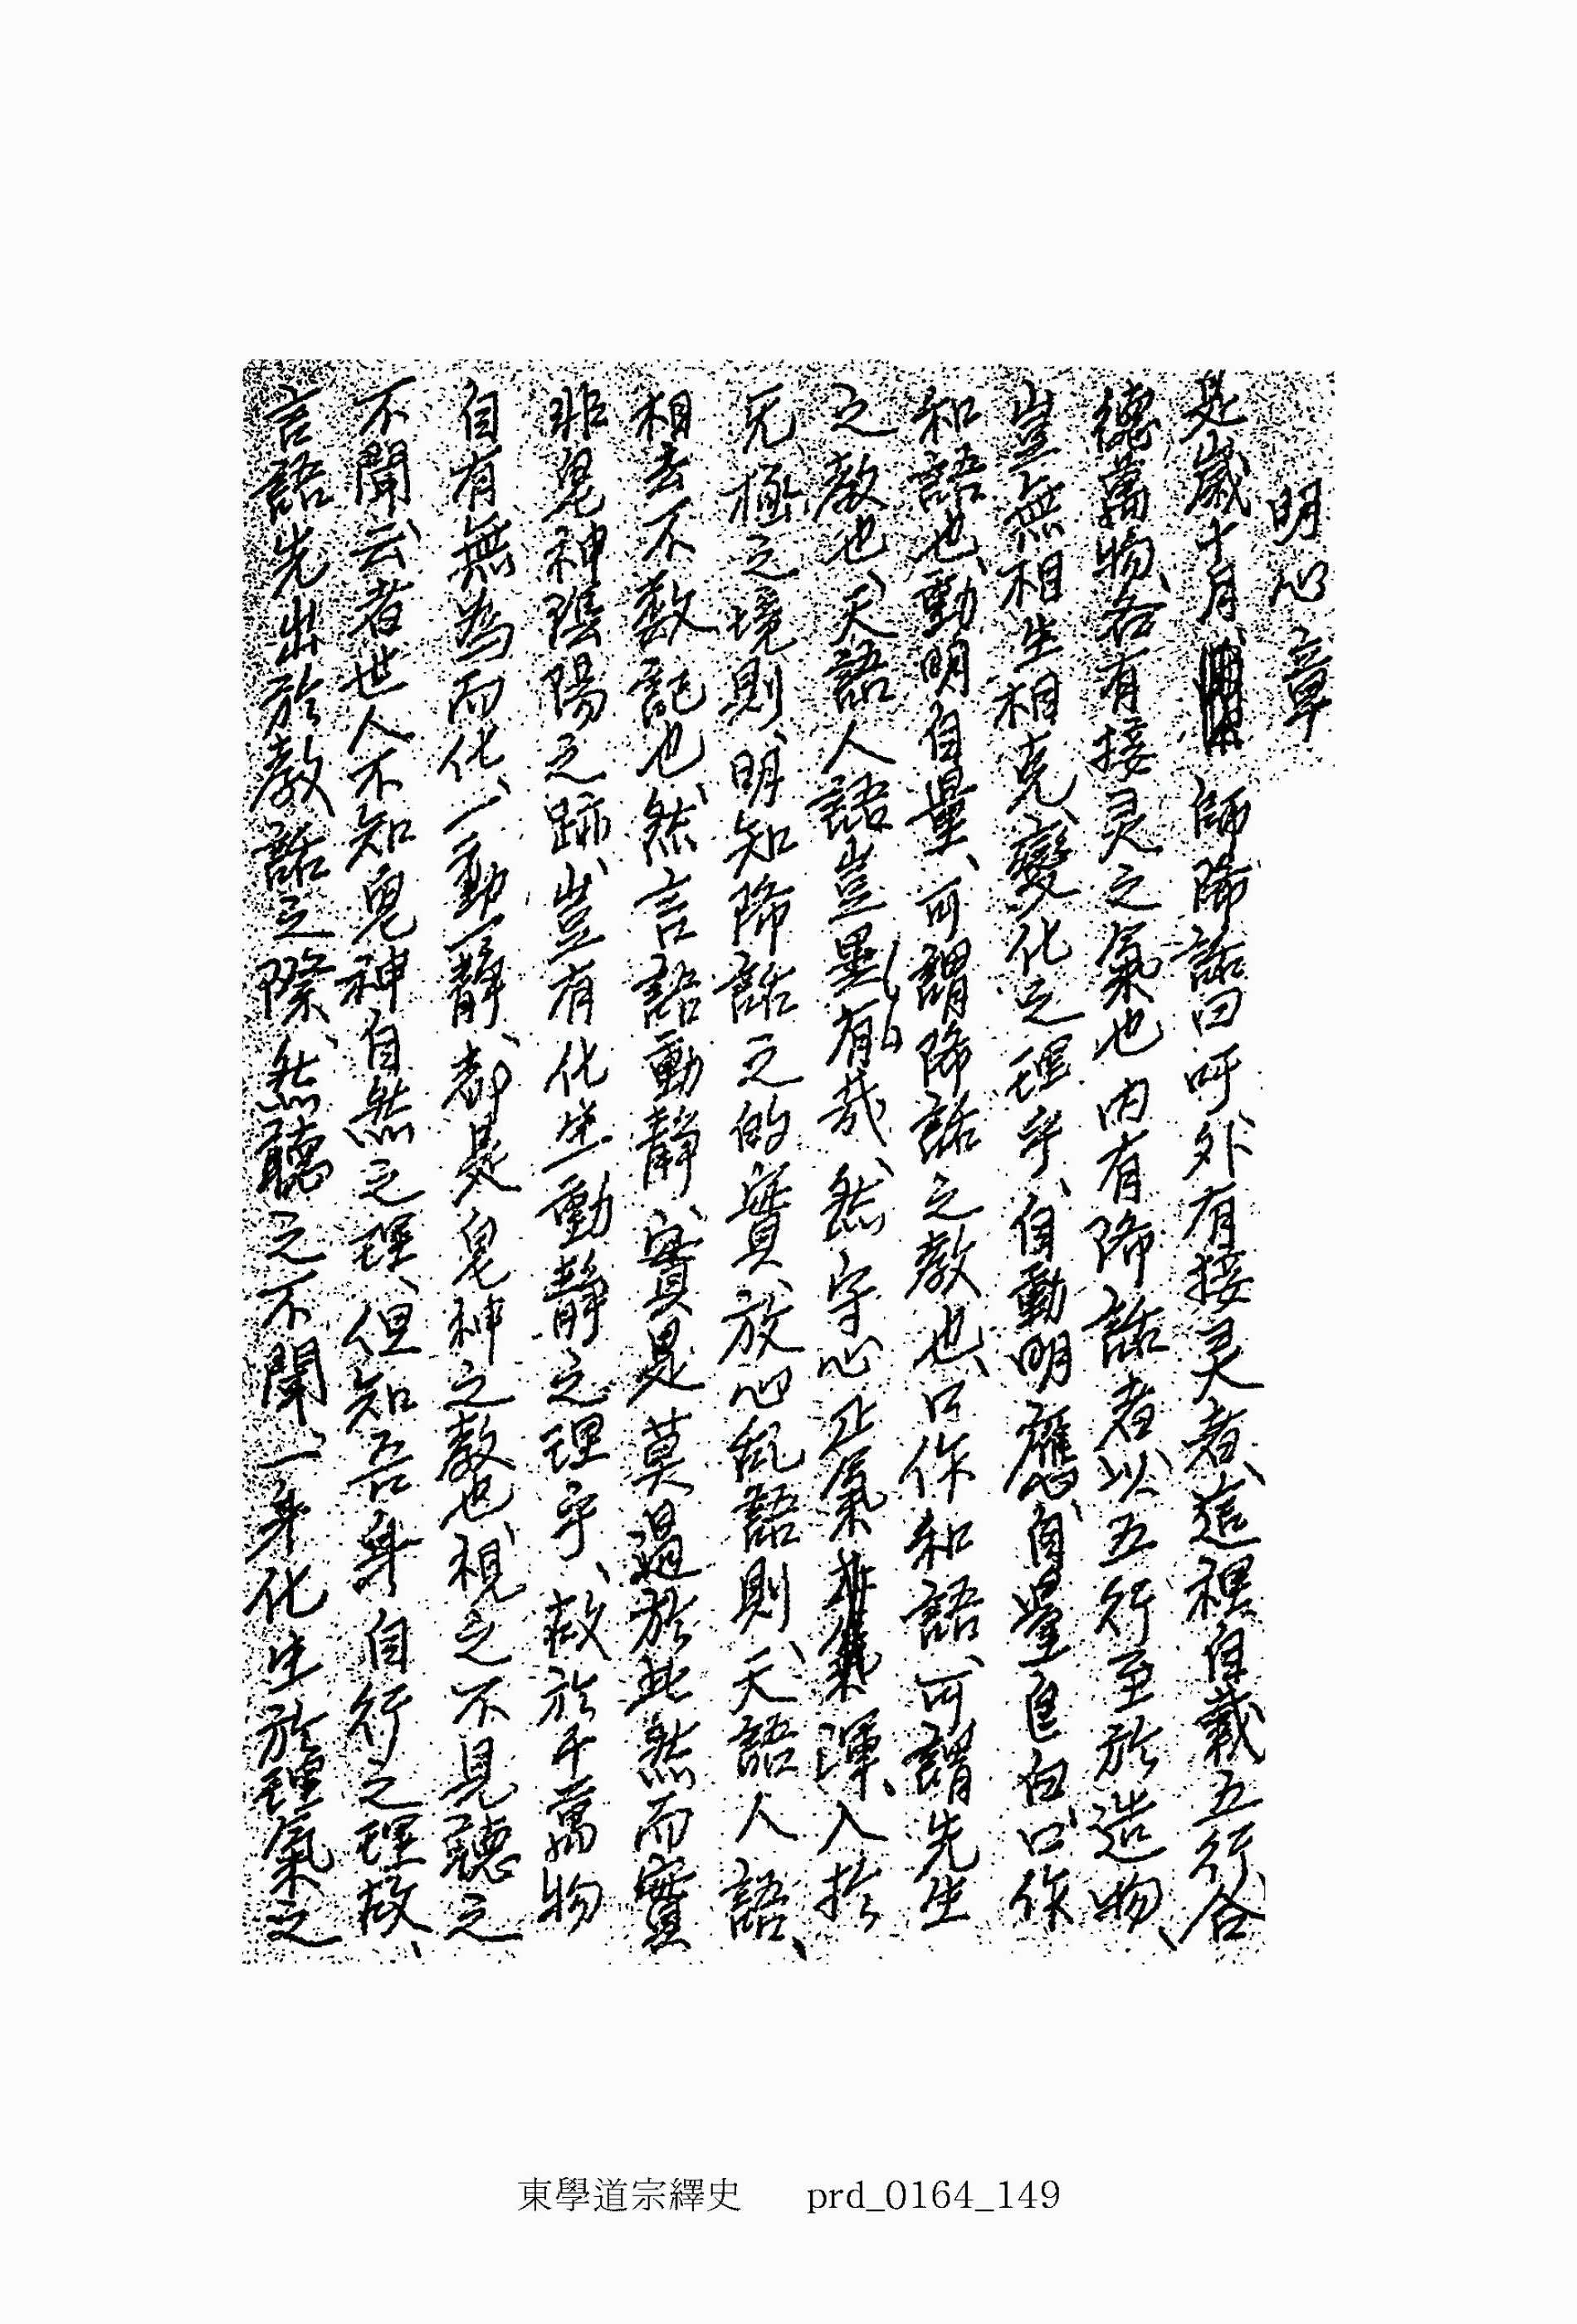 明心章
是歲十月 師降話曰呼外有接灵者、這裡自載五行合
德萬物、各有接灵之氣也內有降話者以五行至於造物、
豈無相生相克、變化之理乎、自動明應、自量自白、口作
和語也、動明自量、可謂降話之教也、口作和語、可謂先生
之教也、天語人語豈異有哉、然守心正氣渾入於
无極之境則、明知降話之的實、放心乱語則、天語人語、
相去不數記也、然言語動靜、實是莫過於此然而實
非鬼神陰陽之跡、豈有化生動靜之理乎、故於千萬物
自有無爲而化、一動一靜、都是鬼神之教也、視之不見聽之
不聞云者、世人不知鬼神自然之理、但知吾身自行之理故、
言語先出於教話之際、然聽之不聞、一身化生於理氣之
東學道宗繹史 prd_0164_149